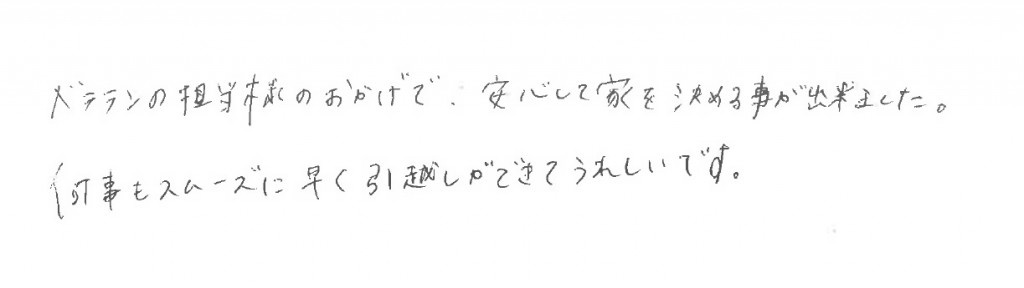 ベテランの担当様のおかげで、安心して家を決める事が出来ました。
何事もスムーズに早く引越しができてうれしいです。